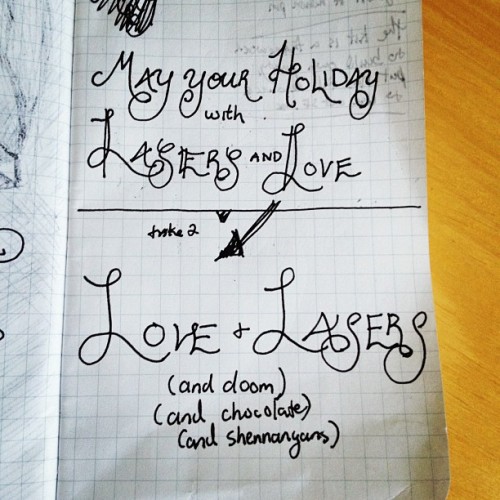 MAY your HOLIDAY
with
LASERS AND LOVE
take 2
LOVE + LASERS
(and doom)
(and chocolate)
(and shennanygans)